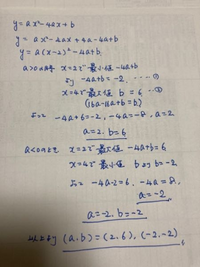 y=ax²-4ax+b
y=ax²-4ax+4a-4a+b
y=a(x-2)²-4a+b.
a>0のとき x=2で最小値-4a+b
より -4a+b=-2. ……①
x=4で最大値 b=6 …②
(16a-16a+b=b.)
-4a+6=-2, -4a=-8, a=2
a=2, b=6
a<0のとき x=2で最大値 -4a+b=6
x=4で最小値 bよりb=-2.
-4a-2=6. -4a=8,
a=-2
a=-2. b=-2
以上より (a,b)=(2,6), (-2,-2)